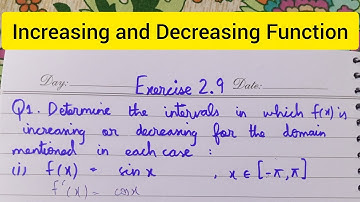 Increasing and Decreasing Function
Day: Exercise 2.9 Date:
Q1. Determine the intervals in which f(x) is
increasing or decreasing for the domain
mentioned in each case :
(i) f(x) = sinx , x ∈ [-π, π]
f'(x) = cosx